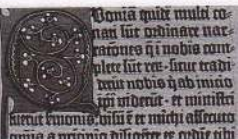 Quoniā quidē multi co-
nati sūt ordinare nar-
rationes q̄ i nobis com-
plete sūt reꝝ. sicut tradi-
derūt nobis q̇ ab inicio
ip̄i viderūt. et ministri
fuerūt s̄monis. visū ē et michi assecuto
omnia a prīcipio diligēter ex ordine tibi